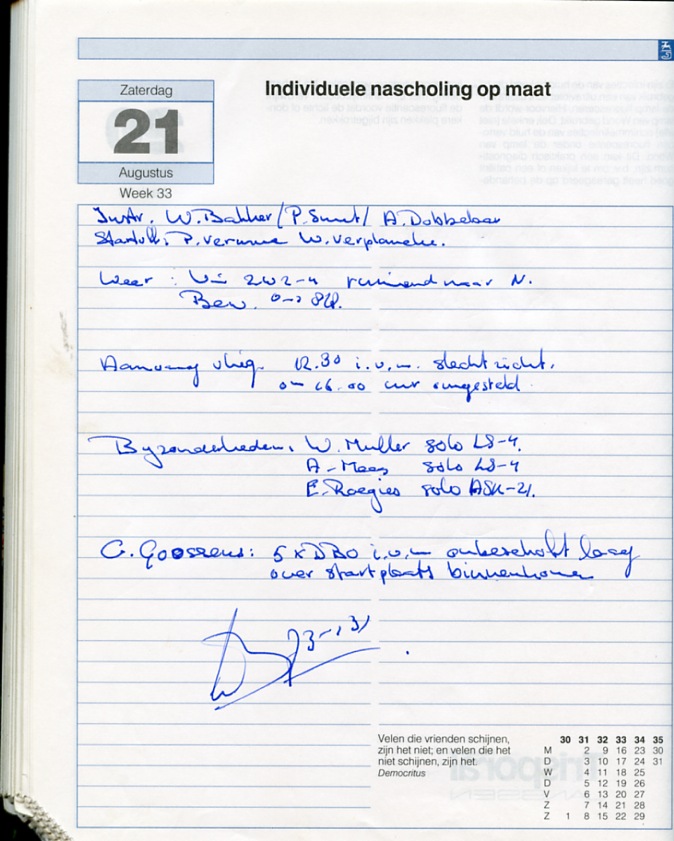 Individuele nascholing op maat
Zaterdag
21
Augustus
Week 33
Instr. W. Bakker / P. Smit / A. Dobbelaar
Startoff: P. W. Verplancke.
Weer : ruimend naar N.
Bew. 8/8.
Aanvang vlieg. 12.30 i.v.m. slecht zicht.
om 16.00 uur ingesteld.
Byzonderheden: W. Muller solo LS-4.
A. Mees solo LS-4
E. Raegies solo ASK-21.
G. Goossens: 5 x DBO i.v.m onbeschoft laag
over startplaats binnenkomen
Velen die vrienden schijnen,
zijn het niet; en velen die het
niet schijnen, zijn het.
Democritus
30 31 32 33 34 35
M 2 9 16 23 30
D 3 10 17 24 31
W 4 11 18 25
D 5 12 19 26
V 6 13 20 27
Z 7 14 21 28
Z 1 8 15 22 29